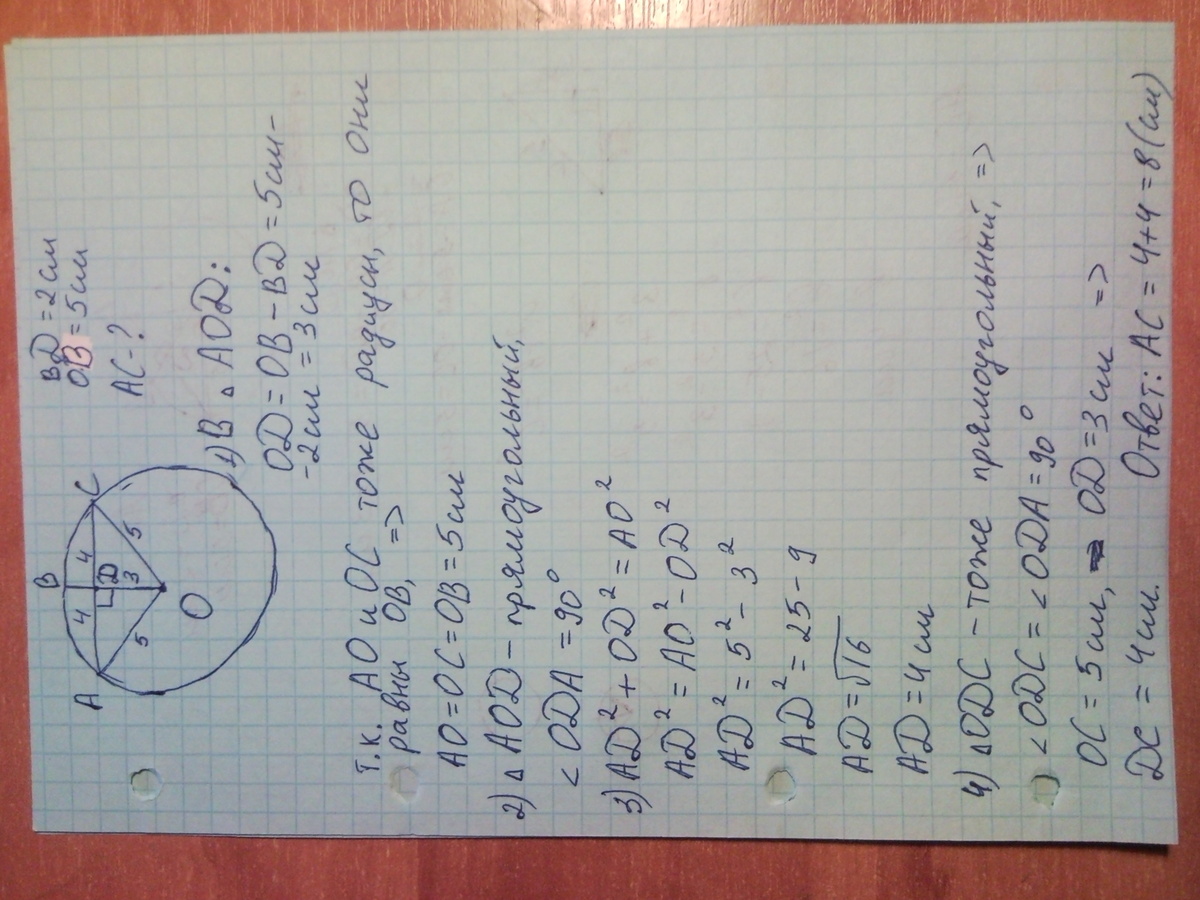 BD = 2 см
OB = 5 см
AC - ?
B
A
C
4
4
D
3
5
5
O
1) В ▵ AOD:
OD = OB - BD = 5 см -
- 2 см = 3 см
Т.к. AO и OC тоже радиусы, то они
равны OB, =>
AO = OC = OB = 5 см
2) ▵ AOD - прямоугольный,
< ODA = 90°
3) AD² + OD² = AO²
AD² = AO² - OD²
AD² = 5² - 3²
AD² = 25 - 9
AD = √16
AD = 4 см
4) ▵ ODC - тоже прямоугольный, =>
< ODC = < ODA = 90°
OC = 5 см, OD = 3 см =>
DC = 4 см. Ответ: AC = 4+4 = 8 (см)